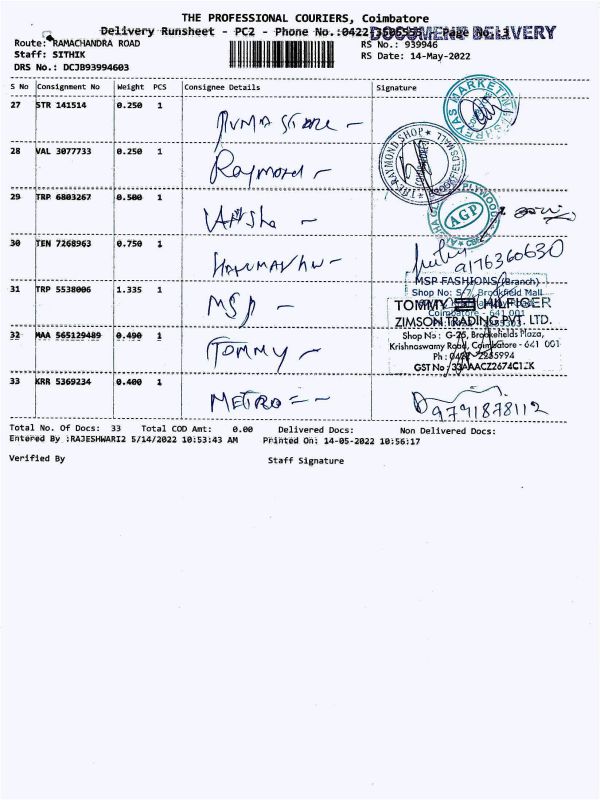 THE PROFESSIONAL COURIERS, Coimbatore
Delivery Runsheet - PC2 - Phone No.:0422 Page No.:3
DOCUMENT DELIVERY
Route: RAMACHANDRA ROAD RS No.: 939946
Staff: SITHIK RS Date: 14-May-2022
DRS No.: DCJB93994603
S No Consignment No Weight PCS Consignee Details Signature
27 STR 141514 0.250 1 PUMA STORE
28 VAL 3077733 0.250 1 Raymond
THE RAYMOND SHOP
29 TRP 6803267 0.500 1
AGP
30 TEN 7268963 0.750 1
9176360630
31 TRP 5538006 1.335 1 MSP
MSP FASHIONS (Branch)
Shop No: S-7, Brookfield Mall
Coimbatore - 641 001
32 MAA 565129489 0.490 1 TOMMY
TOMMY HILFIGER
ZIMSON TRADING PVT. LTD.
Shop No : G-25, Brookefields Plaza,
Krishnaswamy Road, Coimbatore - 641 001
Ph : 0422 - 2255994
GST No : 33AAACZ2674C1ZK
33 KRR 5369234 0.400 1 METRO
9791878112
Total No. Of Docs: 33 Total COD Amt: 0.00 Delivered Docs: Non Delivered Docs:
Entered By :RAJESHWARI2 5/14/2022 10:53:43 AM Printed On: 14-05-2022 10:56:17
Verified By Staff Signature